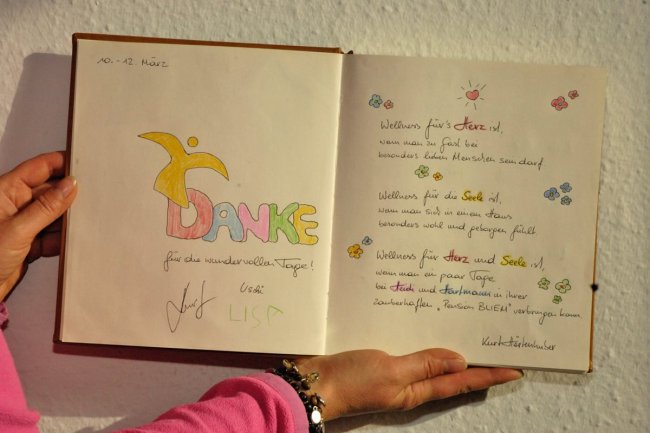 10. - 12. März
DANKE
für die wundervollen Tage!
Kurt
Uschi
LISA
Wellness für's Herz ist,
wenn man zu Gast bei
besonders lieben Menschen sein darf.
Wellness für die Seele ist,
wenn man sich in einem Haus
besonders wohl und geborgen fühlt.
Wellness für Herz und Seele ist,
wenn man ein paar Tage
bei Heidi und Hartmann in ihrer
zauberhaften "Pension BLIEM" verbringen kann.
Kurt